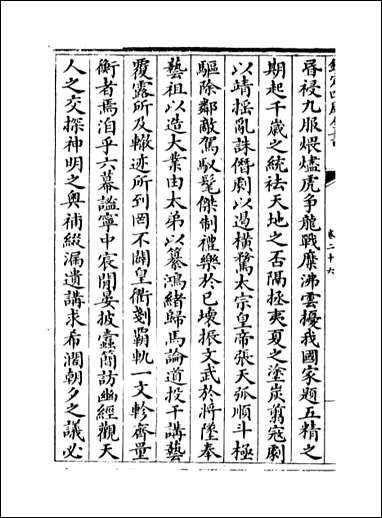 欽定四庫全書
卷二十六
昬祲九服煨燼虎爭龍戰糜沸雲擾我國家題五精之
期起千歲之統祛天地之否隔拯夷夏之塗炭翦寇劇
以靖搖亂誅僭劇以遏橫騖太宗皇帝張天弧順斗極
驅除鄰敵駕馭髦傑制禮樂於已壞振文武於將墜奉
藝祖以造大業由太弟以纂鴻緒歸馬論道投干講藝
覆露所及轍迹所到罔不闢皇衢剗霸軌一文軫齊量
衡者焉洎乎六幕謐寧中宸閒晏披蠹簡訪幽經觀天
人之交探神明之奥補綴漏遺講求希濶朝夕之議必